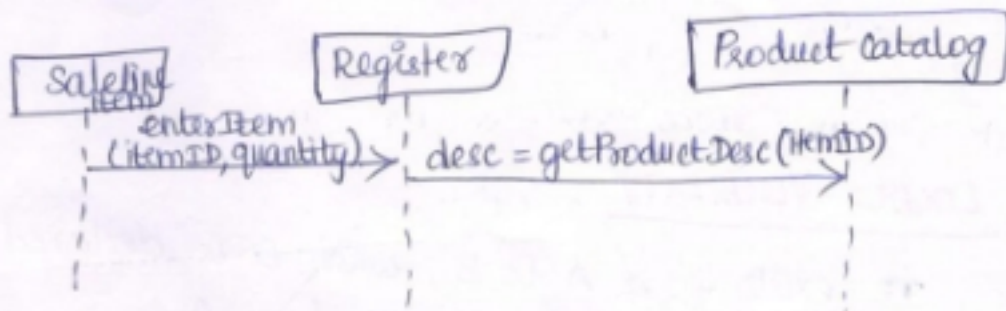 Saleline
item
Register
Product Catalog
enterItem
(itemID, quantity)
desc = getProductDesc(itemID)